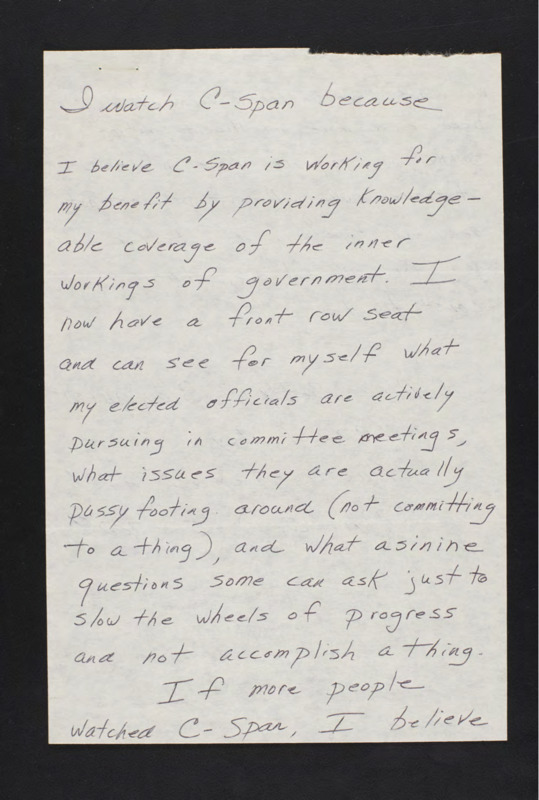 I watch C-Span because
I believe C-Span is working for
my benefit by providing Knowledge-
able coverage of the inner
workings of government. I
now have a front row seat
and can see for myself what
my elected officials are actively
pursuing in committee meetings,
what issues they are actually
pussy footing around (not committing
to a thing), and what asinine
questions some can ask just to
slow the wheels of progress
and not accomplish a thing.
If more people
watched C-Span, I believe